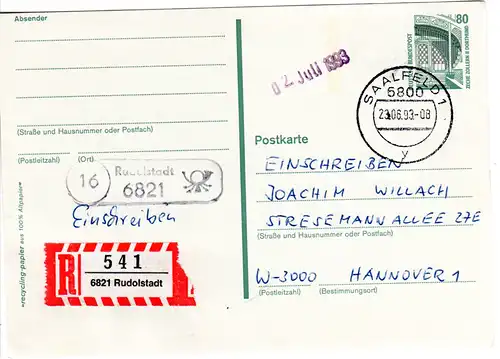 Absender
80
DEUTSCHE BUNDESPOST
02. Juli 1993
SAALFELD 1
6800
23.06.93-08
y
(Straße und Hausnummer oder Postfach)
(Postleitzahl) (Ort)
Postkarte
16 Rudolstadt
6821
Einschreiben
EINSCHREIBEN
JOACHIM WILLACH
STRESEMANNALLEE 27E
(Straße und Hausnummer oder Postfach)
W-3000 HANNOVER 1
(Postleitzahl) (Bestimmungsort)
R 541
6821 Rudolstadt
"recycling-papier aus 100% Altpapier"